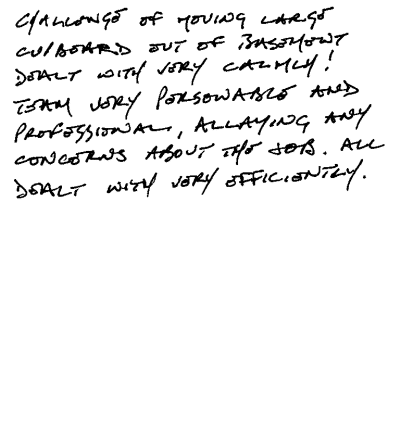 CHALLENGE OF MOVING LARGE
CUPBOARD OUT OF BASEMENT
DEALT WITH VERY CALMLY!
TEAM VERY PERSONABLE AND
PROFESSIONAL, ALLAYING ANY
CONCERNS ABOUT THE JOB. ALL
DEALT WITH VERY EFFICIENTLY.